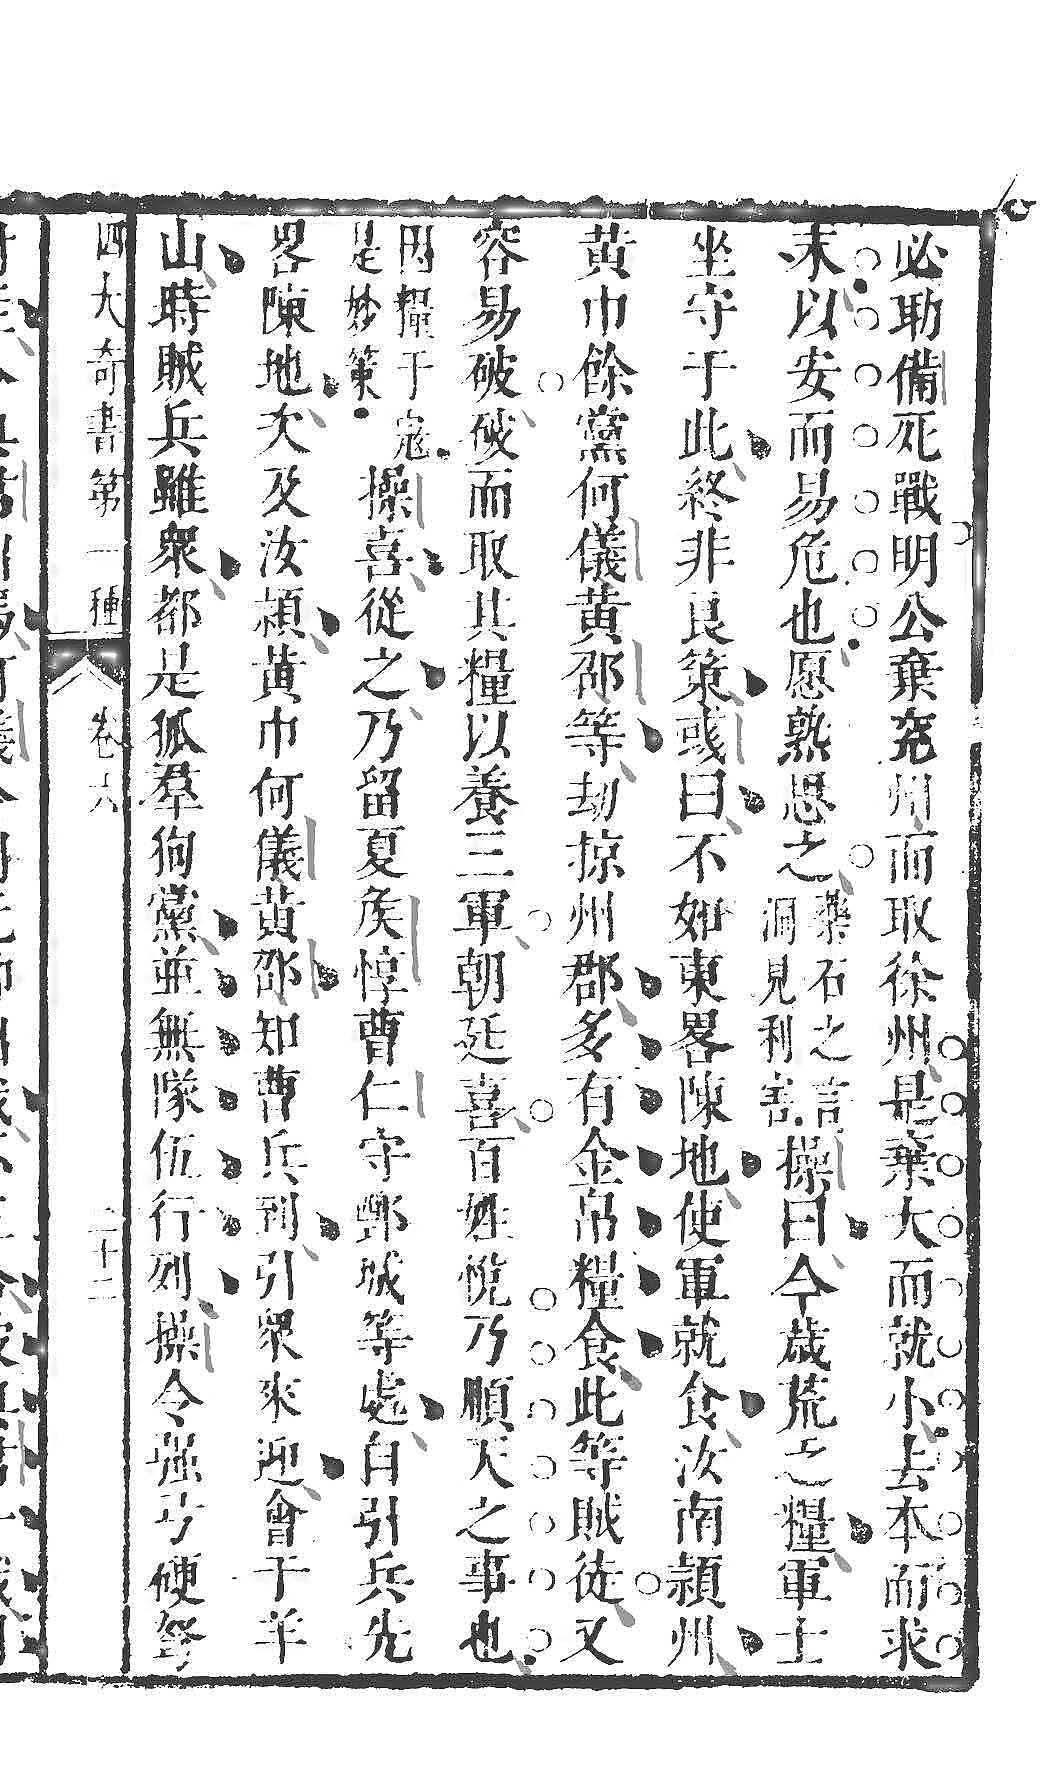 必助備死戰明公棄兖州而取徐州是棄大而就小去本而求
末以安而易危也愿熟思之藥石之言洞見利害操曰今歲荒乏糧軍士
坐守于此終非良策彧曰不如東畧陳地使軍就食汝南潁州
黄巾餘黨何儀黄邵等劫掠州郡多有金帛糧食此等賊徒又
容易破破而取其糧以養三軍朝廷喜百姓悅乃順天之事也
因糧于寇是妙策操喜從之乃留夏侯惇曹仁守鄄城等處自引兵先
畧陳地次及汝潁黄巾何儀黄邵知曹兵到引眾來迎會于羊
山時賊兵雖衆都是狐羣狗黨並無隊伍行列操令强弓硬弩
四大奇書第一種 卷六 二十二